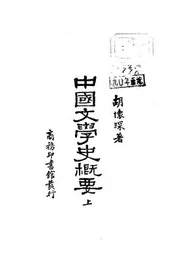 胡懷琛著
中國文學史概要 上
商務印書館發行